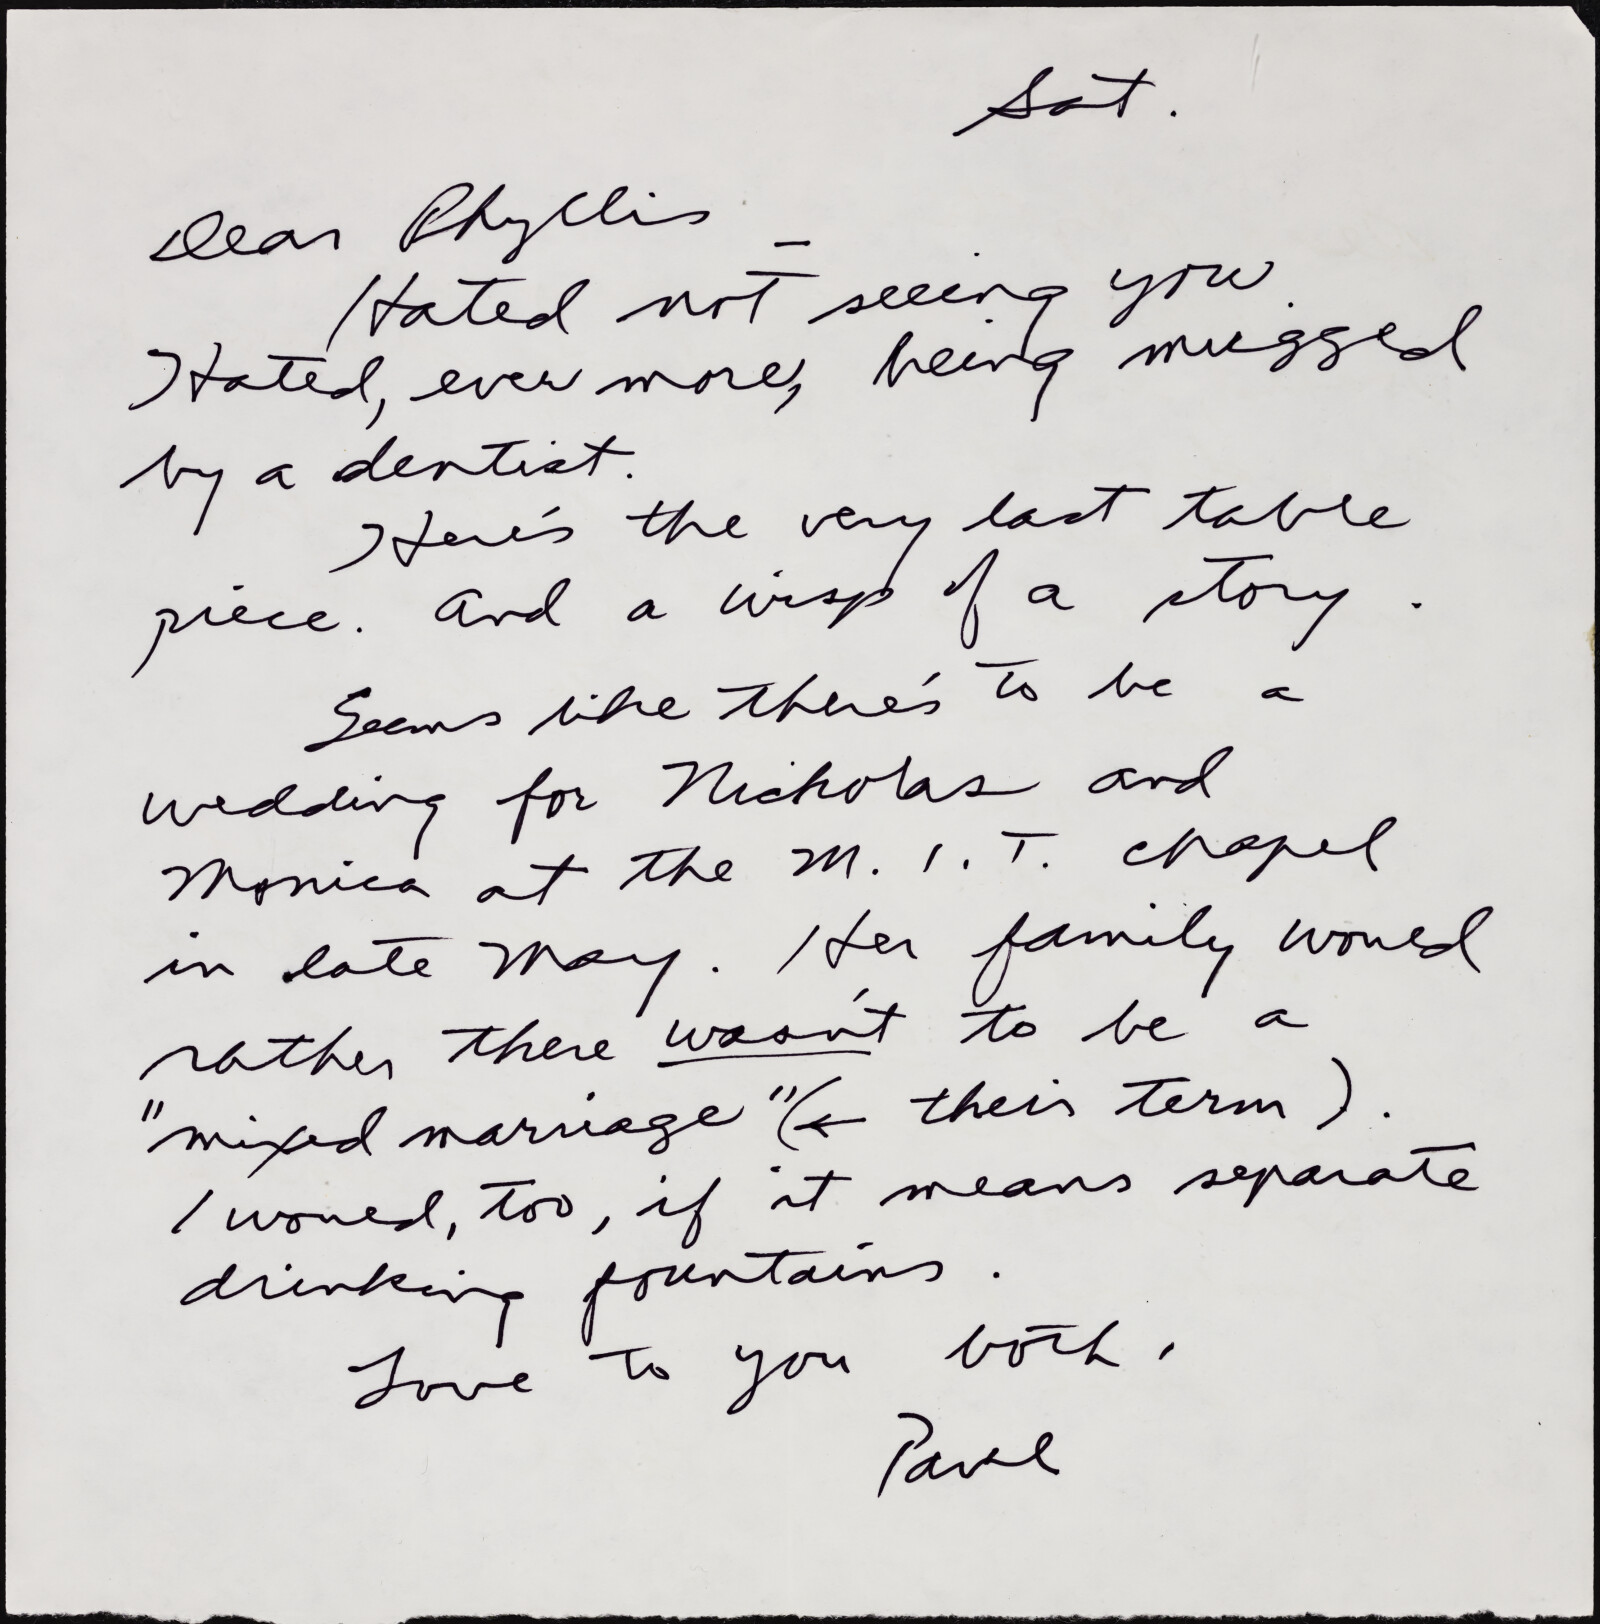 Sat.
Dear Phyllis —
Hated not seeing you.
Hated, even more, being mugged
by a dentist.
Here's the very last table
piece. And a wisp of a story.
Seems like there's to be a
wedding for Nicholas and
Monica at the M.I.T. chapel
in late May. Her family would
rather there wasn't to be a
"mixed marriage" (← their term).
I would, too, if it means separate
drinking fountains.
Love to you both,
Paul